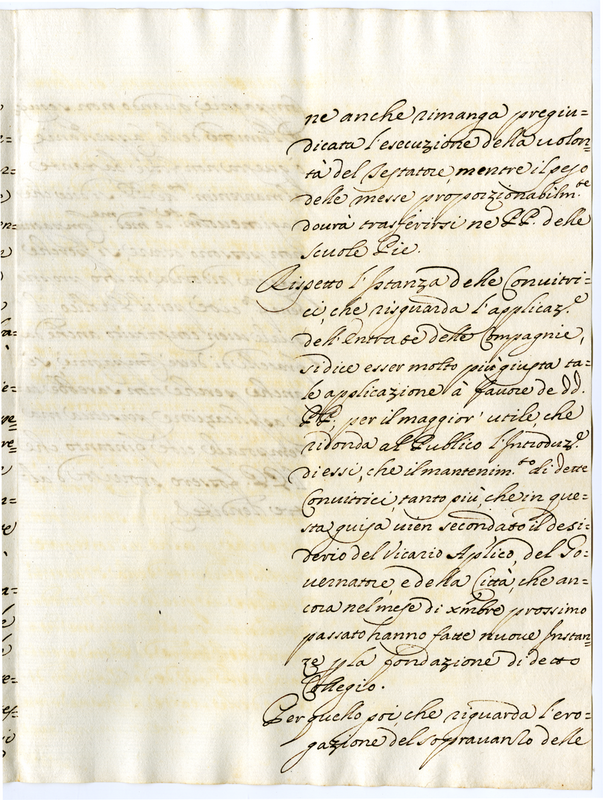 ne anche rimanga pregiu=
dicata l'esecuzione della uolon=
tà del Testatore, mentre il peso
delle messe proporzionabilm.te
dourà trasferirsi ne PP. delle
scuole Pie.
Rispetto l'Istanza delle Conuitri=
ci, che risguarda l'applicaz.e
dell'Entrate delle Compagnie,
si dice esser molto più giusta ta=
le applicazione à fauore de dd.
PP., per il maggior utile, che
ridonda al Publico l'Introduz.e
di essi, che il mantenim.to di dette
Conuitrici, tanto più, che in que=
sta guisa uien secondato il desi=
derio del Vicario Aplico, del Go=
uernatore, e della Città, che an=
cora nel mese di xmbre prossimo
passato hanno fatte nuoue Instan=
ze p la fondazione di detto
Collegio.
Per quello poi, che riguarda l'ero=
gazione del soprauanzo delle